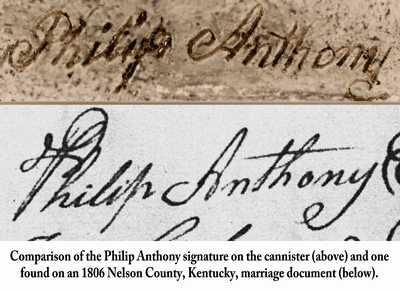 Philip Anthony
Philip Anthony
Comparison of the Philip Anthony signature on the cannister (above) and one
found on an 1806 Nelson County, Kentucky, marriage document (below).